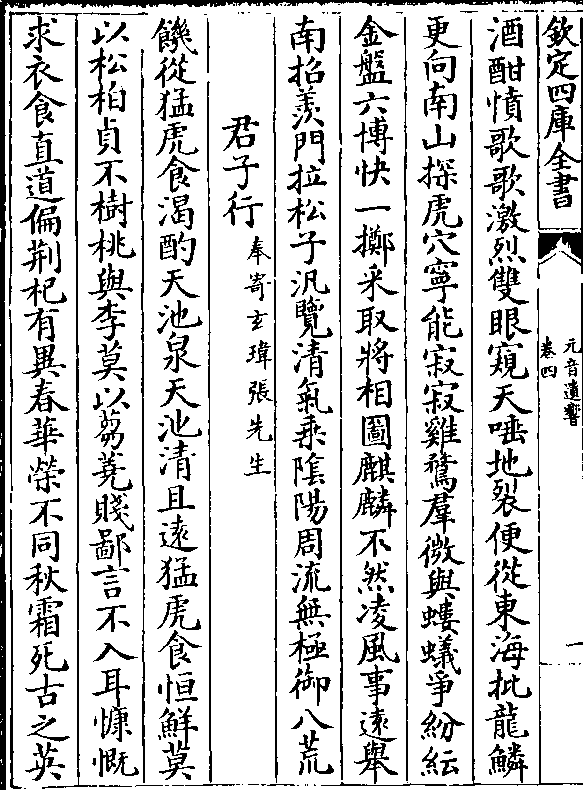 欽定四庫全書
元音遺響
卷四
一
酒酣憤歌歌激烈雙眼窺天唾地裂便從東海批龍鱗
更向南山探虎穴寧能寂寂雞鶩羣微與螻蟻爭紛紜
金盤六博快一擲采取將相圖麒麟不然凌風事遠舉
南招羨門拉松子汎覽清氣乘陰陽周流無極御八荒
君子行奉寄玄瑋張先生
饑從猛虎食渴酌天池泉天池清且遠猛虎食恒鮮莫
以松柏貞不樹桃與李莫以芻蕘賤鄙言不入耳慷慨
求衣食直道偏荆杞有異春華榮不同秋霜死古之英